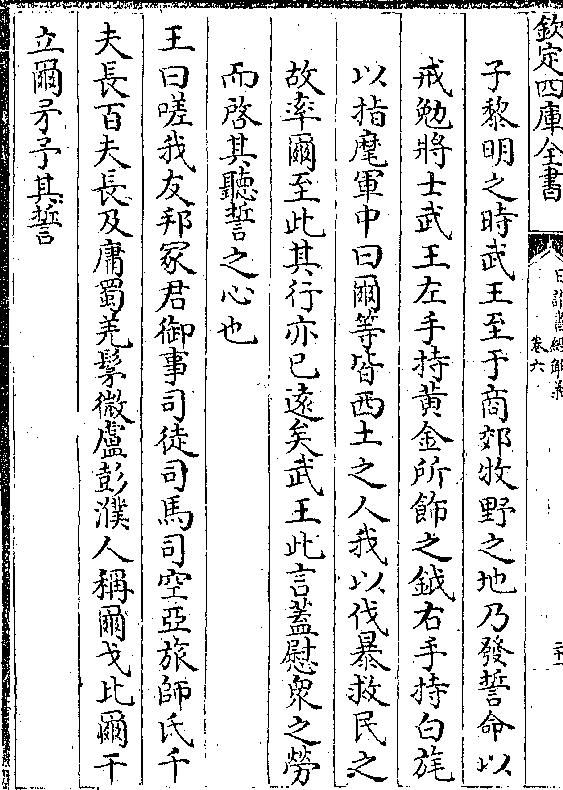 欽定四庫全書
日講書經解義
卷六
子黎明之時武王至于商郊牧野之地乃發誓命以
戒勉將士武王左手持黃金所飾之鉞右手持白旄
以指麾軍中曰爾等皆西土之人我以伐暴救民之
故率爾至此其行亦已遠矣武王此言蓋慰衆之勞
而啓其聽誓之心也
王曰嗟我友邦冢君御事司徒司馬司空亞旅師氏千
夫長百夫長及庸蜀羌髳微盧彭濮人稱爾戈比爾干
立爾矛予其誓